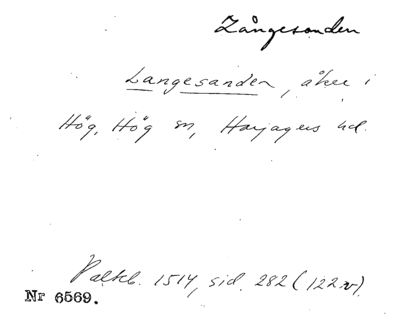 Långesanden
Langesanden, åker i
Hög, Hög sn, Harjagers hd.
Palteb. 1514, sid. 282 (122 v).
Nr 6569.